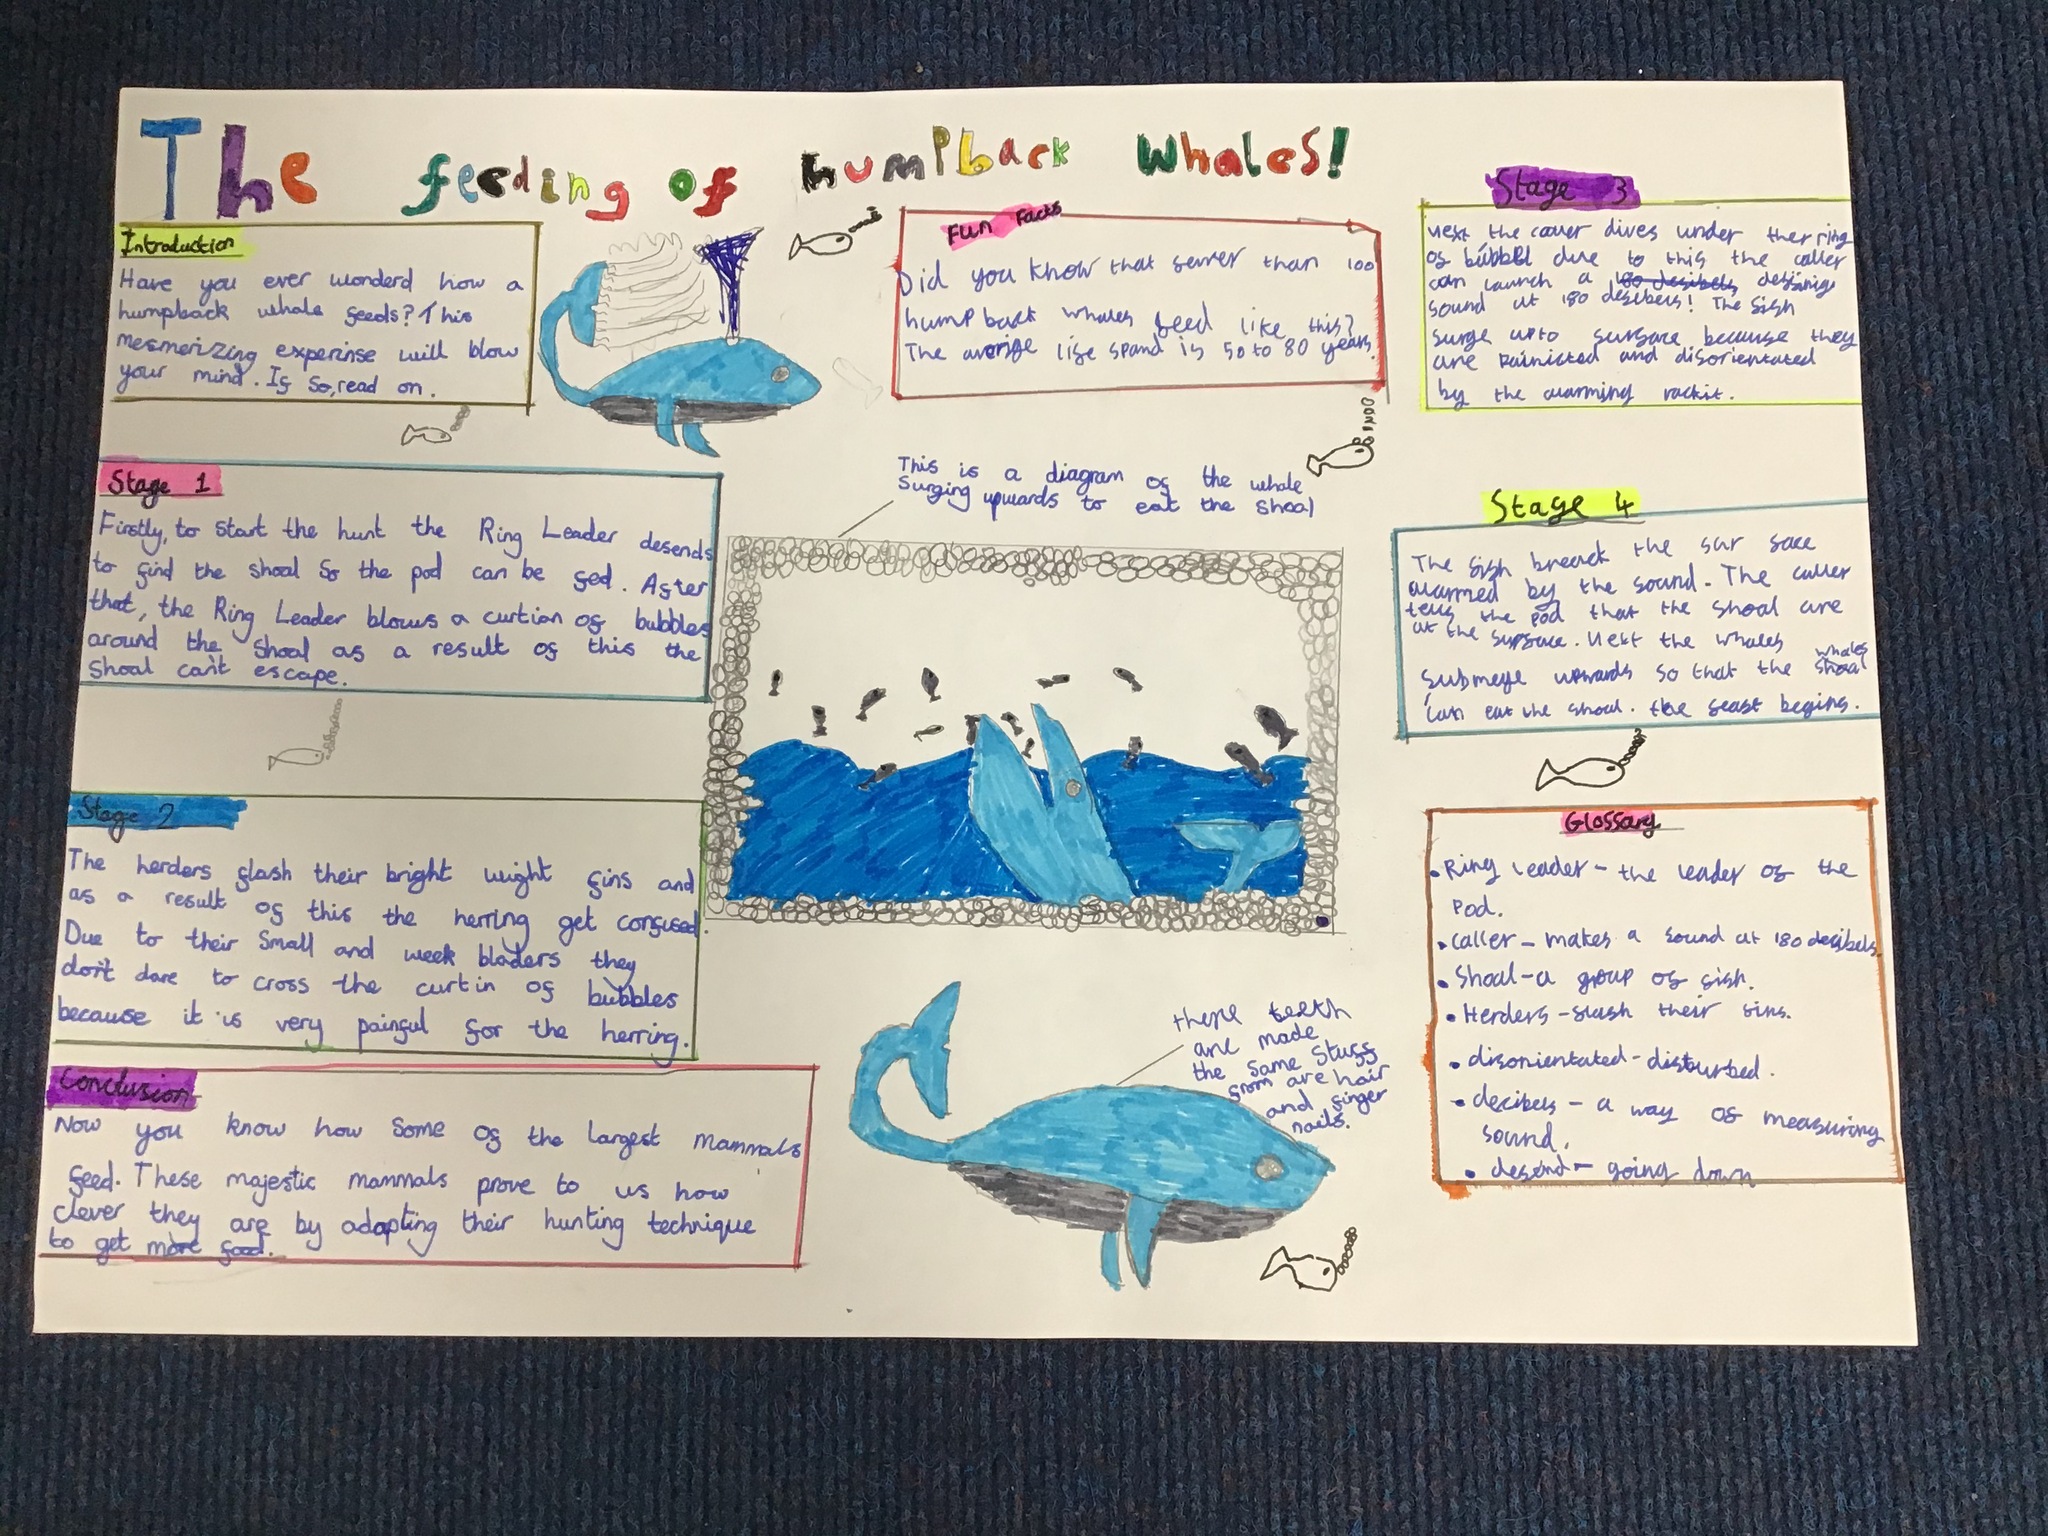 The feeding of humpback whales!
Introduction
Have you ever wonderd how a
humpback whale feeds? This
mesmerizing experinse will blow
your mind. If so, read on.
Stage 1
Firstly, to start the hunt the Ring Leader desends
to find the shoal so the pod can be fed. After
that, the Ring Leader blows a curtion of bubbles
around the shoal as a result of this the
shoal can't escape.
Stage 2
The herders flash their bright wight fins and
as a result of this the herring get confused.
Due to their small and week bladers they
don't dare to cross the curtin of bubbles
because it is very painful for the herring.
Conclusion
Now you know how some of the largest mammals
feed. These majestic mammals prove to us how
clever they are by adapting their hunting technique
to get more food.
Fun Facts
Did you know that fewer than 100
humpback whales feed like this?
The average life spand is 50 to 80 years.
This is a diagram of the whale
surging upwards to eat the shoal
there teeth
are made
the same stuff
from are hair
and finger
nails.
Stage 3
next the caller dives under the ring
of bubbel due to this the caller
can launch a 180 desibels
sound at 180 desibers! The fish
surge upto surface because they
are painicted and disorientated
by the alarming rackit.
Stage 4
The fish breack the sur face
alarmed by the sound. The caller
tells the pod that the shoal are
at the surface. next the whales
submerge upwards so that the whales shoal
can eat the shoal. the feast begins.
Glossary
• Ring leader - the leader of the
pod.
• caller - makes a sound at 180 desibels.
• Shoal - a group of fish.
• Herders - flash their fins.
• disorientated - disturbed.
• decibers - a way of measuring
sound.
• desend - going down